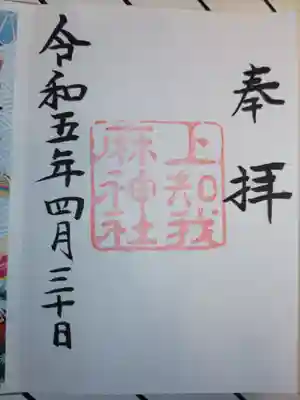 奉拝
上知我
麻神社
令和五年四月三十日